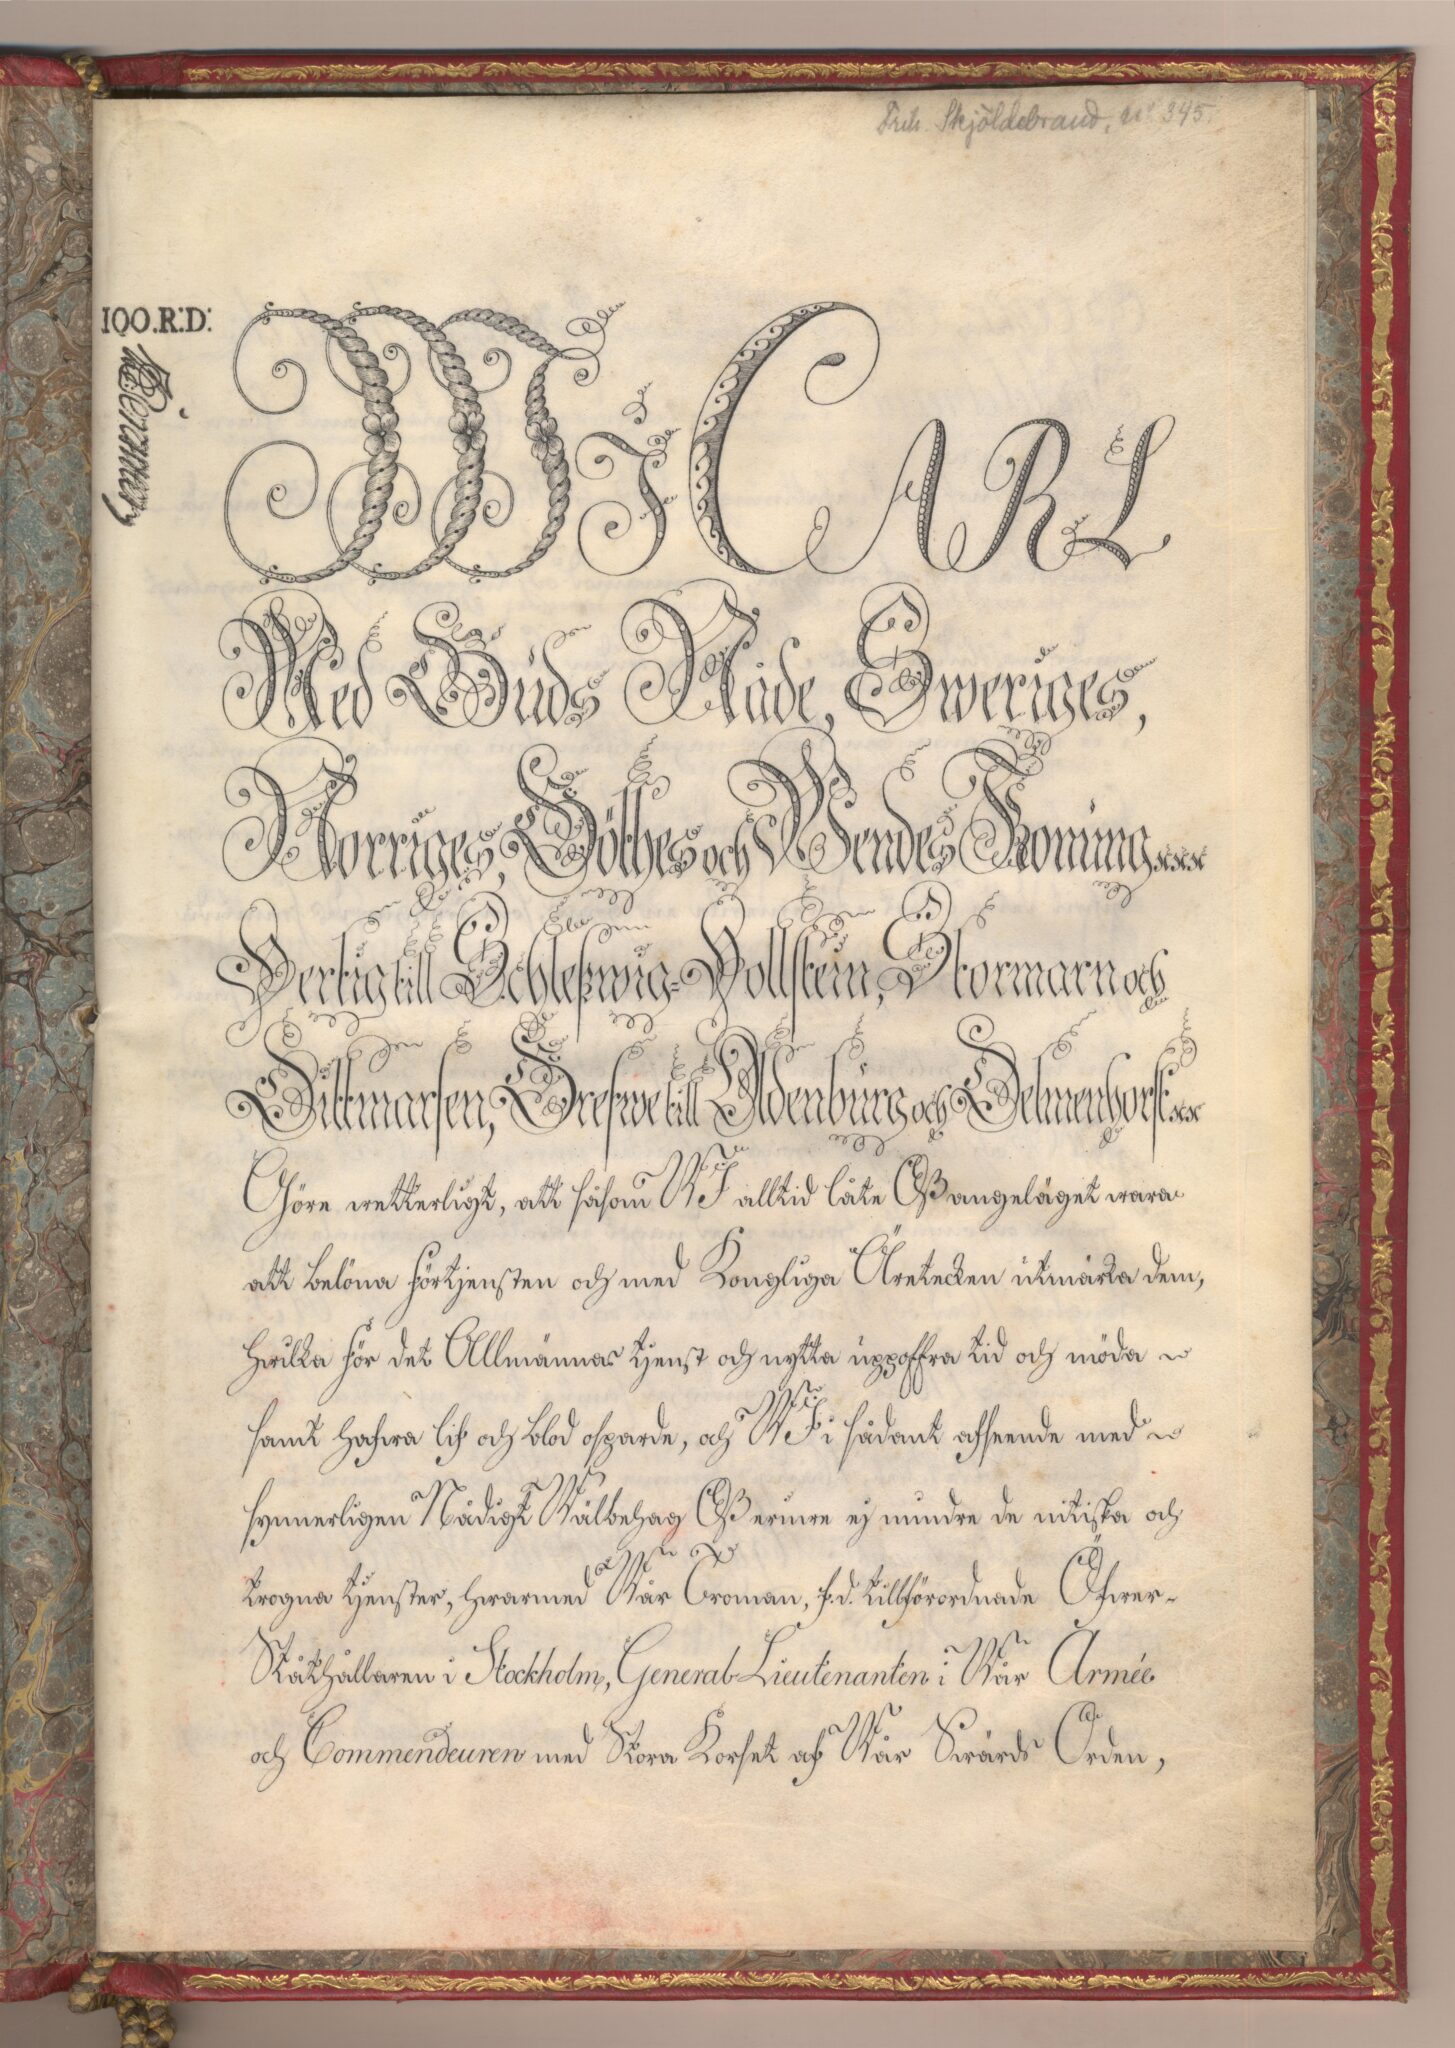 Frih. Skjöldebrand, nº 345.
100.R:D:
Wi CARL
Med Guds Nåde, Sweriges,
Norriges, Göthes och Wendes Konung xxx
Hertig till Schleßwig=Hollstein, Stormarn och
Dittmarsen, Grefwe till Oldenburg och Delmenhorst xx
Göre wetterligt, att såsom WJ alltid låte Oß angeläget wara
att belöna förtjensten och med Kongliga Äretecken utmärka dem,
hwilka för det Allmännas tjenst och nytta uppoffra tid och möda
samt hafwa lif och blod osparde, och WJ i sådant afseende med
synnerligen Nådigt Wälbehag Oß erinre ej mindre de nitiska och
trogna tjenster, hwarmed Wår Troman, f.d. tillförordnade Öfwer-
Ståthållaren i Stockholm, General-Lieutenanten i Wår Armée
och Commendeuren med Stora Korset af Wår Swärds Orden,